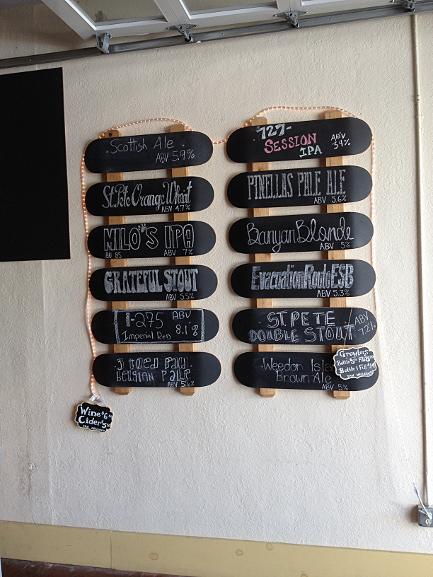 Scottish Ale
ABV 5.9%
St. Pete Orange Wheat
ABV 4.7%
MILO'S IPA
IBU 85 ABV 7%
GRATEFUL STOUT
ABV 5.5%
I-275 ABV
Imperial 8.1%
BELGIAN PALE
ABV 5%
Wine $6
Cider $5
727-
SESSION
IPA
ABV
PINELLAS PALE ALE
ABV 5.6%
Banyan Blonde
ABV 5%
Evacuation Route ESB
ABV 5.3%
ST. PETE ABV
DOUBLE STOUT 7.2%
Weedon Isla
Brown Ale
ABV 5%
Growlers